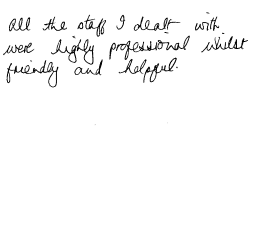 All the staff I dealt with
were highly professional whilst
friendly and helpful.